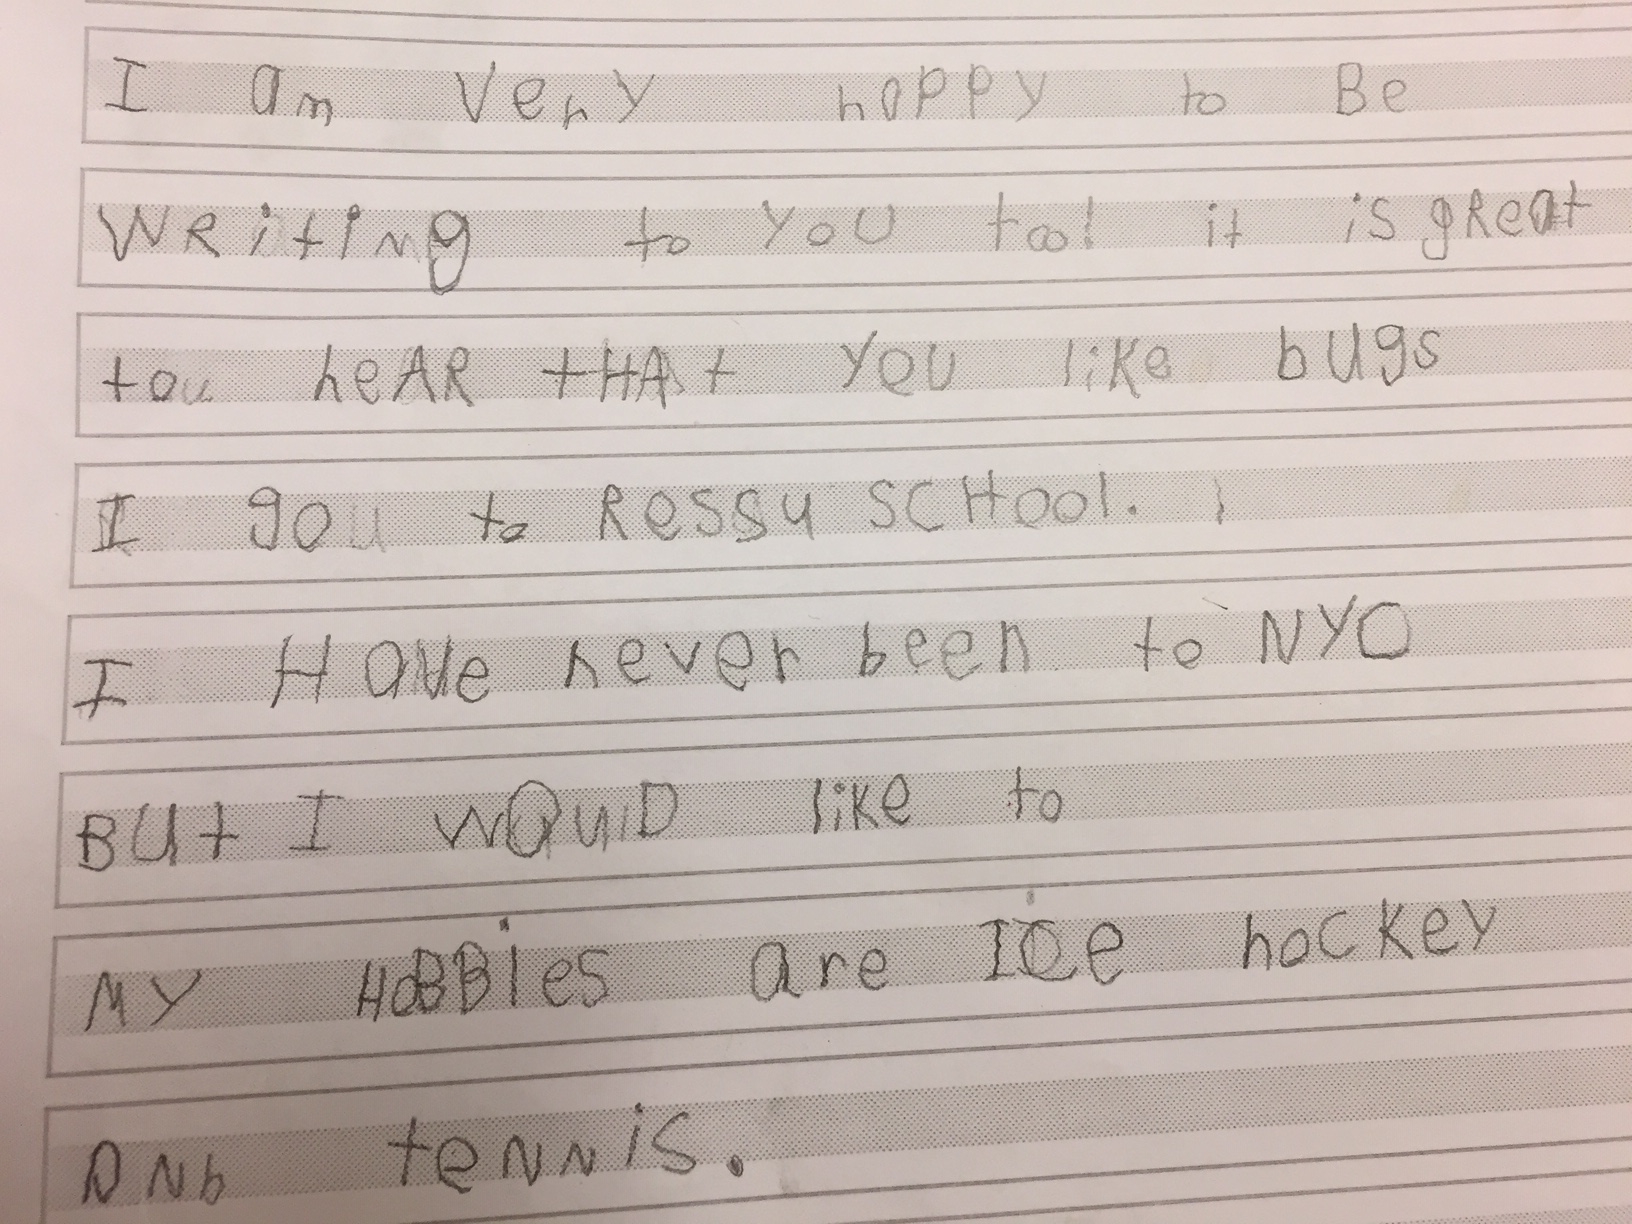 I am Very happy to Be
WRiting to YOU too! it is gReat
tou heAR tHAt YOU like bUgs
I gou to Ressu SCHool.
I HaVe never been to NYC
BUt I wOulD like to
MY HoBBies are ICe hockey
aNb teNNis.